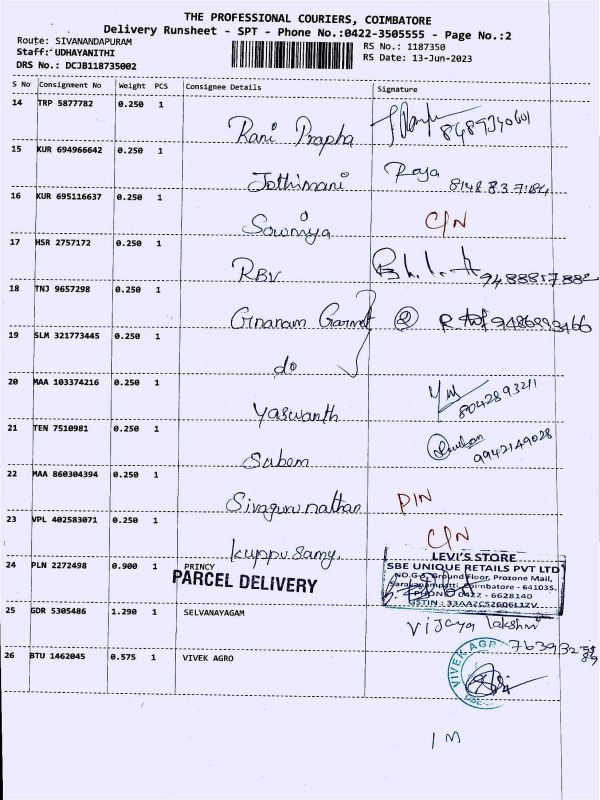 THE PROFESSIONAL COURIERS, COIMBATORE
Delivery Runsheet - SPT - Phone No.:0422-3505555 - Page No.:2
Route: SIVANANDAPURAM
Staff: UDHAYANITHI
DRS No.: DCJB118735002
RS No.: 1187350
RS Date: 13-Jun-2023
S No Consignment No Weight PCS Consignee Details Signature
14 TRP 5877782 0.250 1
Rani Prapha 8489340601
15 KUR 694966642 0.250 1
Jothimani Raja 8148837184
16 KUR 695116637 0.250 1
Sowmiya C/N
17 HSR 2757172 0.250 1
RBV 9488857882
18 TNJ 9657298 0.250 1
Gnanam Garmet 9486993466
19 SLM 321773445 0.250 1
do
20 MAA 103374216 0.250 1
Yaswanth 8042893211
21 TEN 7510981 0.250 1
Subem 9942149028
22 MAA 860304394 0.250 1
Sivagurunathan PIN
23 VPL 402583071 0.250 1
Kuppusamy. C/N
24 PLN 2272498 0.900 1 PRINCY
PARCEL DELIVERY
LEVI'S STORE
SBE UNIQUE RETAILS PVT LTD
NO.G-5, Ground Floor, Prozone Mall,
Coimbatore - 641035.
PHONE: 0422 - 6628140
GSTIN : 33AAZCS2606L1ZV
25 GDR 5305486 1.290 1 SELVANAYAGAM
Vijaya Lakshmi
763932
26 BTU 1462045 0.575 1 VIVEK AGRO
VIVEK AGR
1 M